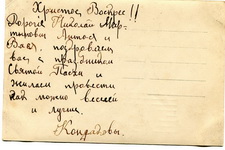 Христос Воскрес!!
Дорогие Николай Мар-
тинович Антося и
Валя, поздровляем
вас с праздником
Святой Пасхи и
желаем провести
как можно веселей
и лучше.
Кондадовы.